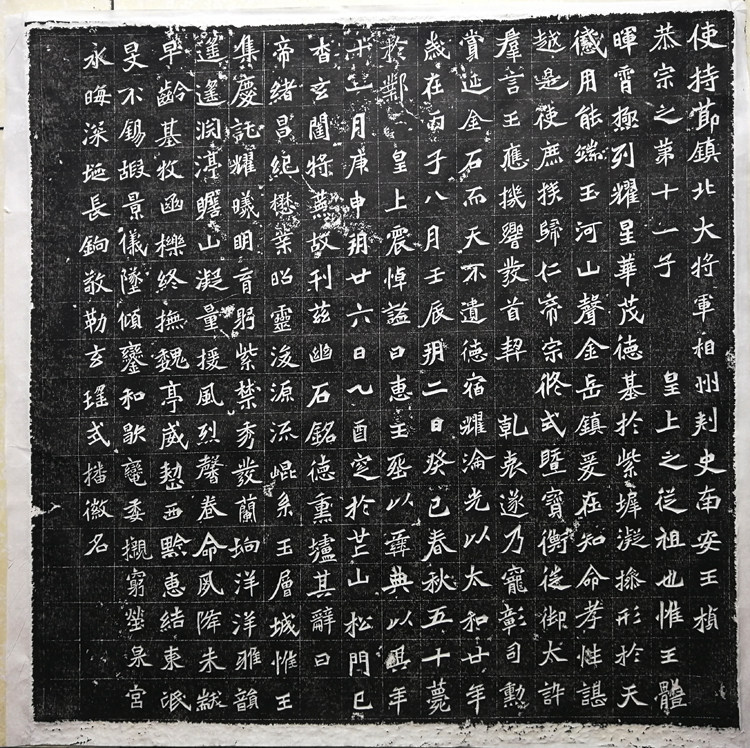 使持節鎮北大將軍相州刺史南安王楨
恭宗之第十一子 皇上之從祖也惟王體
暉霄極列耀星華茂德基於紫墀凝操形於天
儀用能端玉河山聲金岳鎮爰在知命孝性諶
越是使庶族歸仁帝宗攸式暨寶衡徙御太訊
羣言王應機響發首契 乾衷遂乃寵彰司勳
賞延金石而天不遺德宿耀淪光以太和廿年
歲在丙子八月壬辰朔二日癸巳春秋五十薨
於鄴 皇上震悼諡曰惠王葬以彝典以其年
十一月庚申朔廿六日乙酉窆於芒山松門已
杳玄闥將蕪故刊茲幽石銘德熏壚其辭曰
帝緒昌紀懋業昭靈浚源流崐系玉層城惟王
集慶託耀曦明育躬紫禁秀發蘭坰洋洋雅韻
遙遙淵渟瞻山凝量援風烈馨卷命夙降未黻
早齡基牧函櫟終撫魏亭威懾西黔惠結東氓
旻不錫嘏景儀墜傾鑾和歇轙委櫬窮塋泉宮
永晦深埏長扃敬勒玄瑤式播徽名